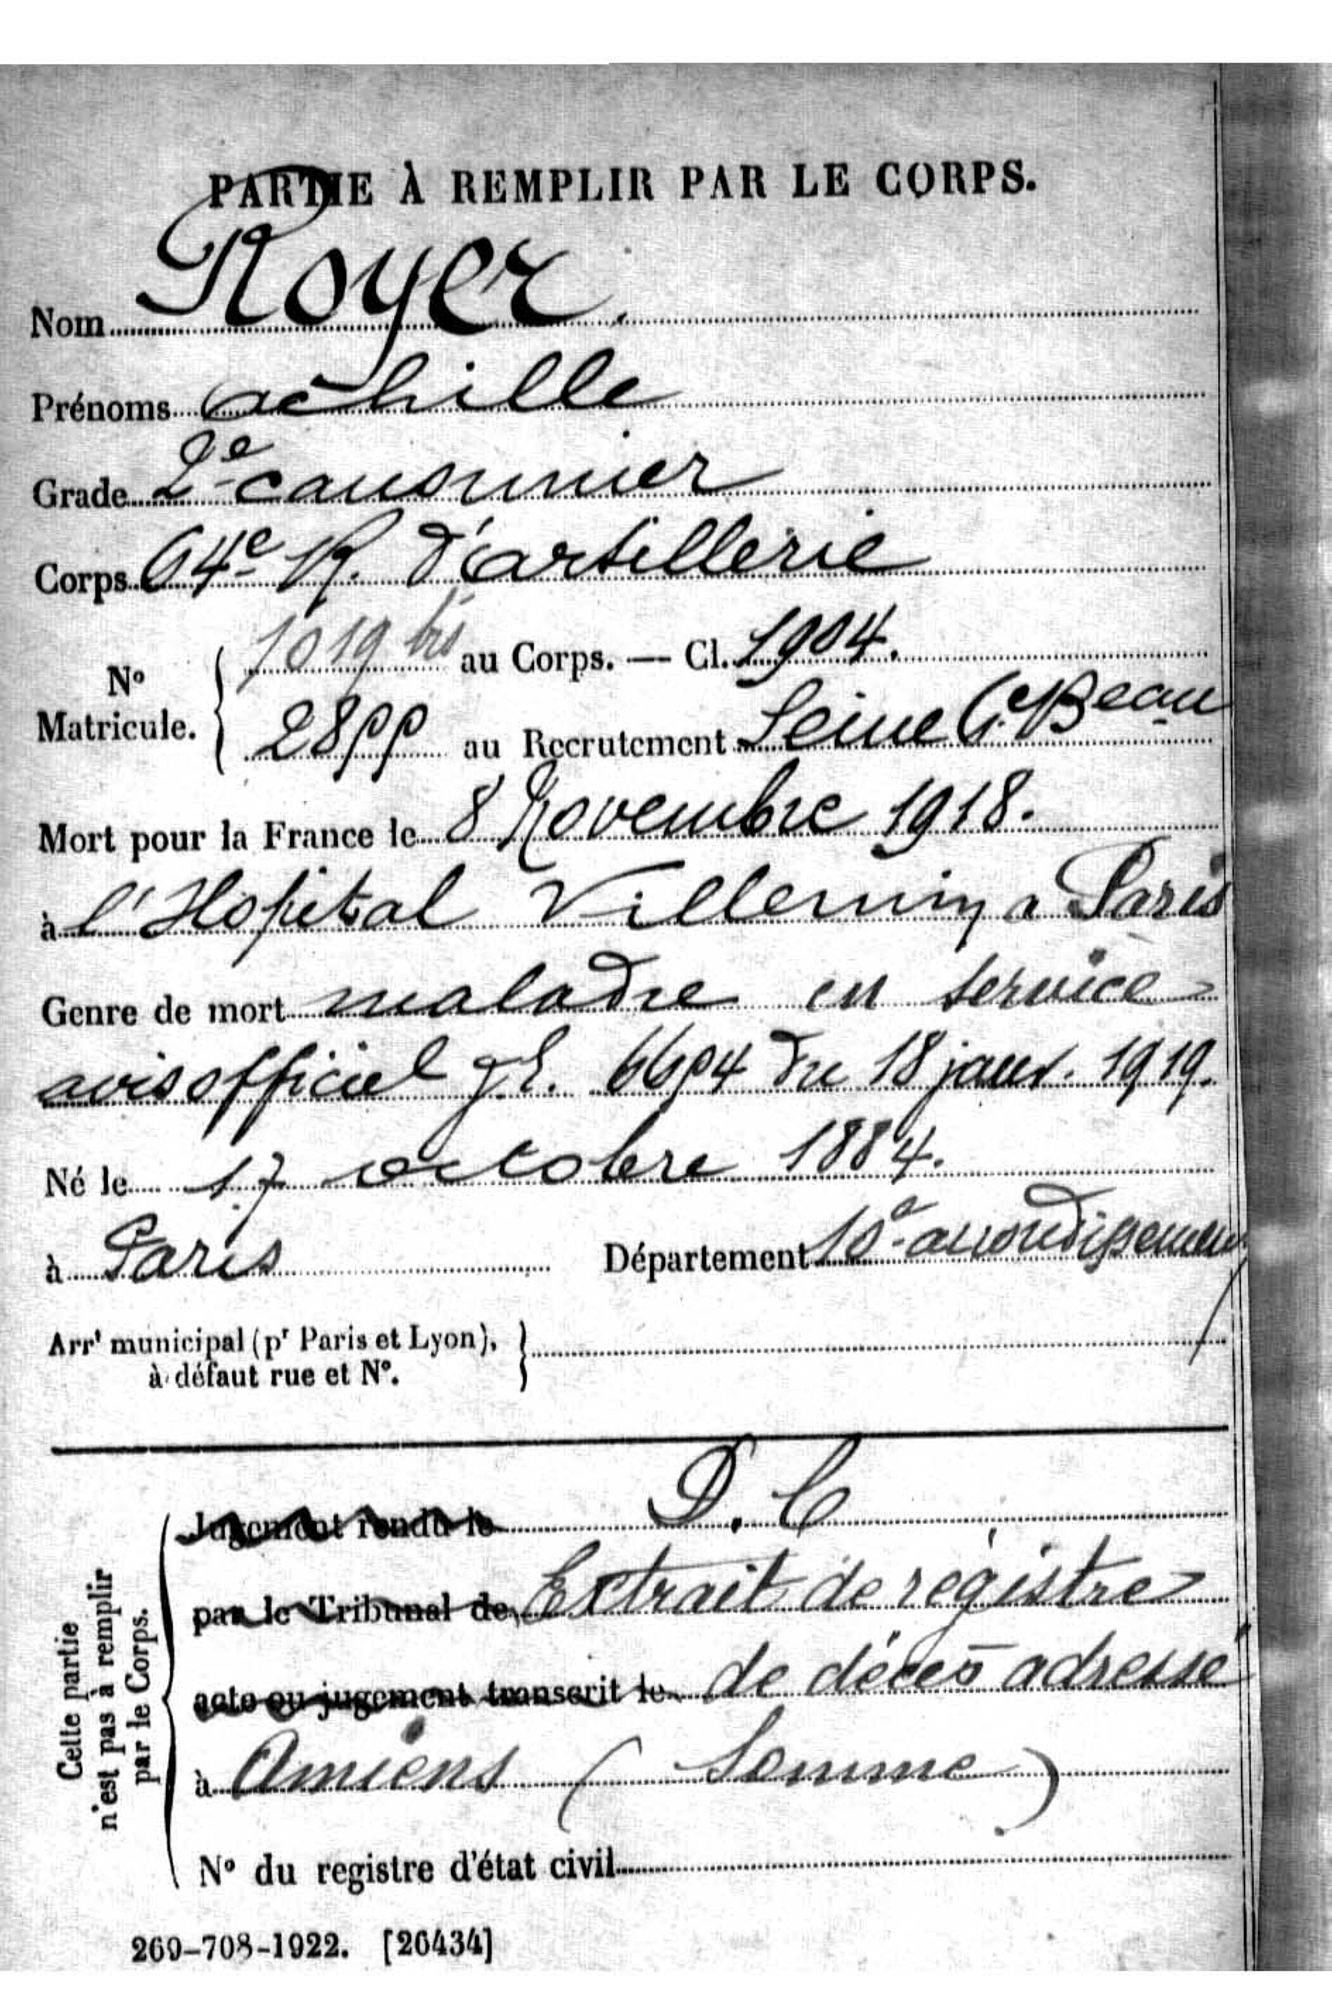 PARTIE À REMPLIR PAR LE CORPS.
Nom Royer.
Prénoms Achille
Grade 2e canonnier
Corps 64e R. d'artillerie
No Matricule. { 1019 bis au Corps. — Cl. 1904.
28pp au Recrutement Seine 6e Beau
Mort pour la France le 8 Novembre 1918.
à l'Hopital Villemin a Paris
Genre de mort maladie en service
avis officiel 6694 du 18 janv. 1919.
Né le 17 octobre 1884.
à Paris Département 10e arrondissement
Arrt municipal (pr Paris et Lyon), à défaut rue et No. }
Cette partie n'est pas à remplir par le Corps.
Jugement rendu le D. C
par le Tribunal de Extrait de registre
acte ou jugement transcrit le de décès adressé
à Amiens (Somme)
No du registre d'état civil
269-708-1922. [26434]